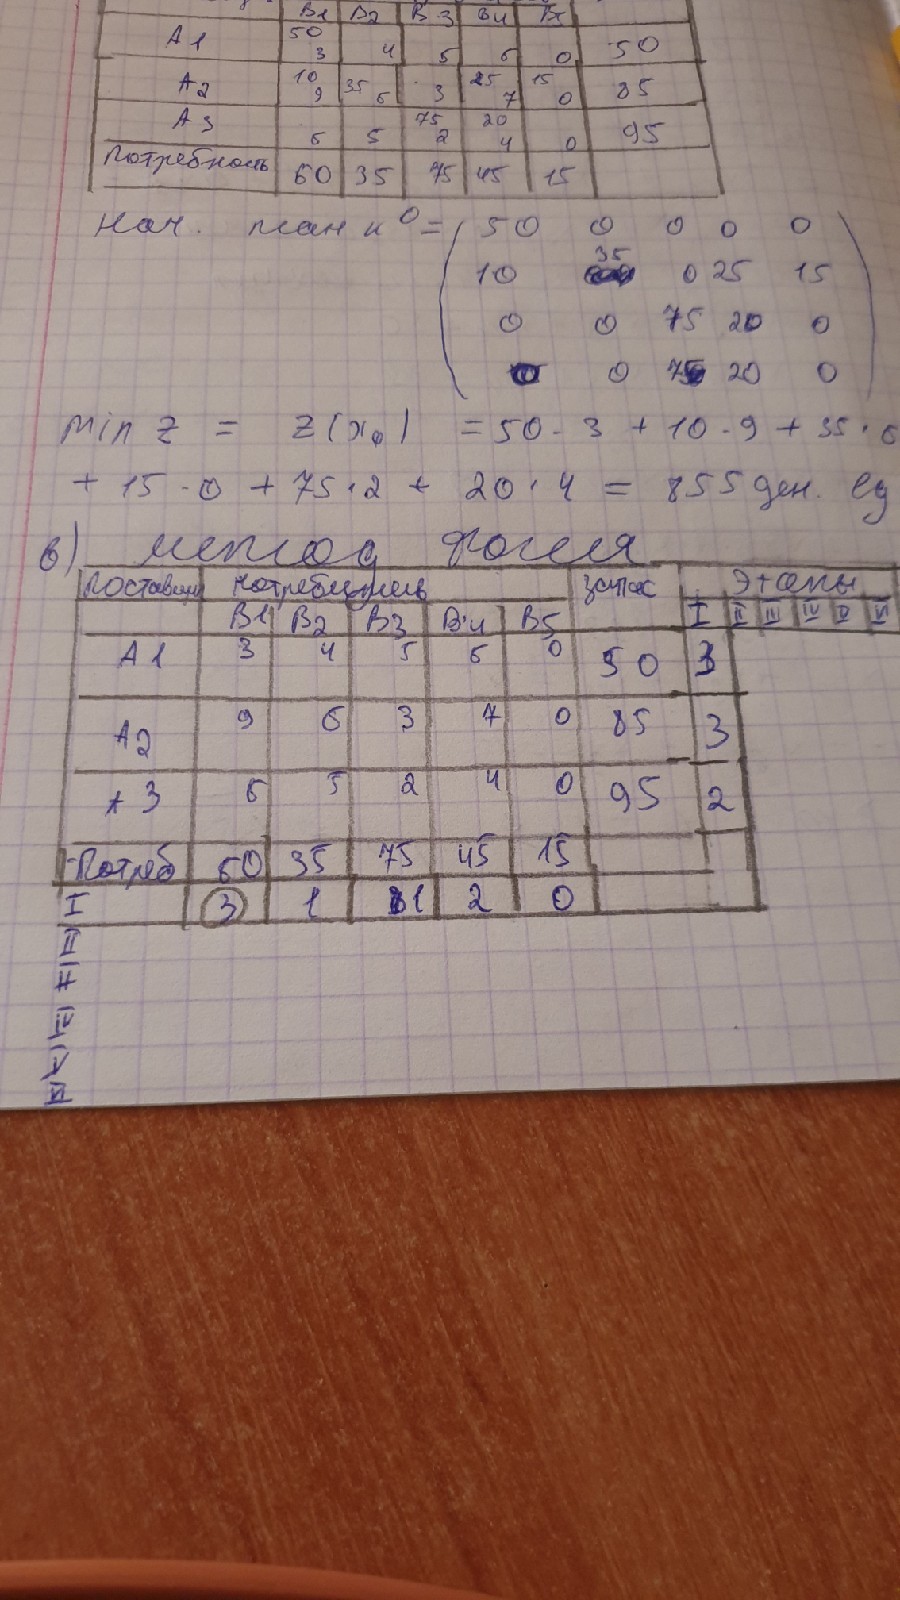 B1 B2 B3 B4 B5
A1 50 3 4 5 6 0 50
A2 10 9 35 6 3 25 7 15 0 85
A3 6 5 75 2 20 4 0 95
Потребность 60 35 75 45 15
Нач. план x⁰ = 50 0 0 0 0
10 35 0 25 15
0 0 75 20 0
0 75 20 0
min z = z(x₀) = 50 · 3 + 10 · 9 + 35 · 6
+ 15 · 0 + 75 · 2 + 20 · 4 = 855 ден. ед
в) метод Фогеля
Поставщ Потребитель запас Этапы
B1 B2 B3 B4 B5 I II III IV V VI
A1 3 4 5 6 0 50 3
A2 9 6 3 7 0 85 3
A3 6 5 2 4 0 95 2
Потреб 60 35 75 45 15
I 3 1 1 2 0
II
III
IV
V
VI